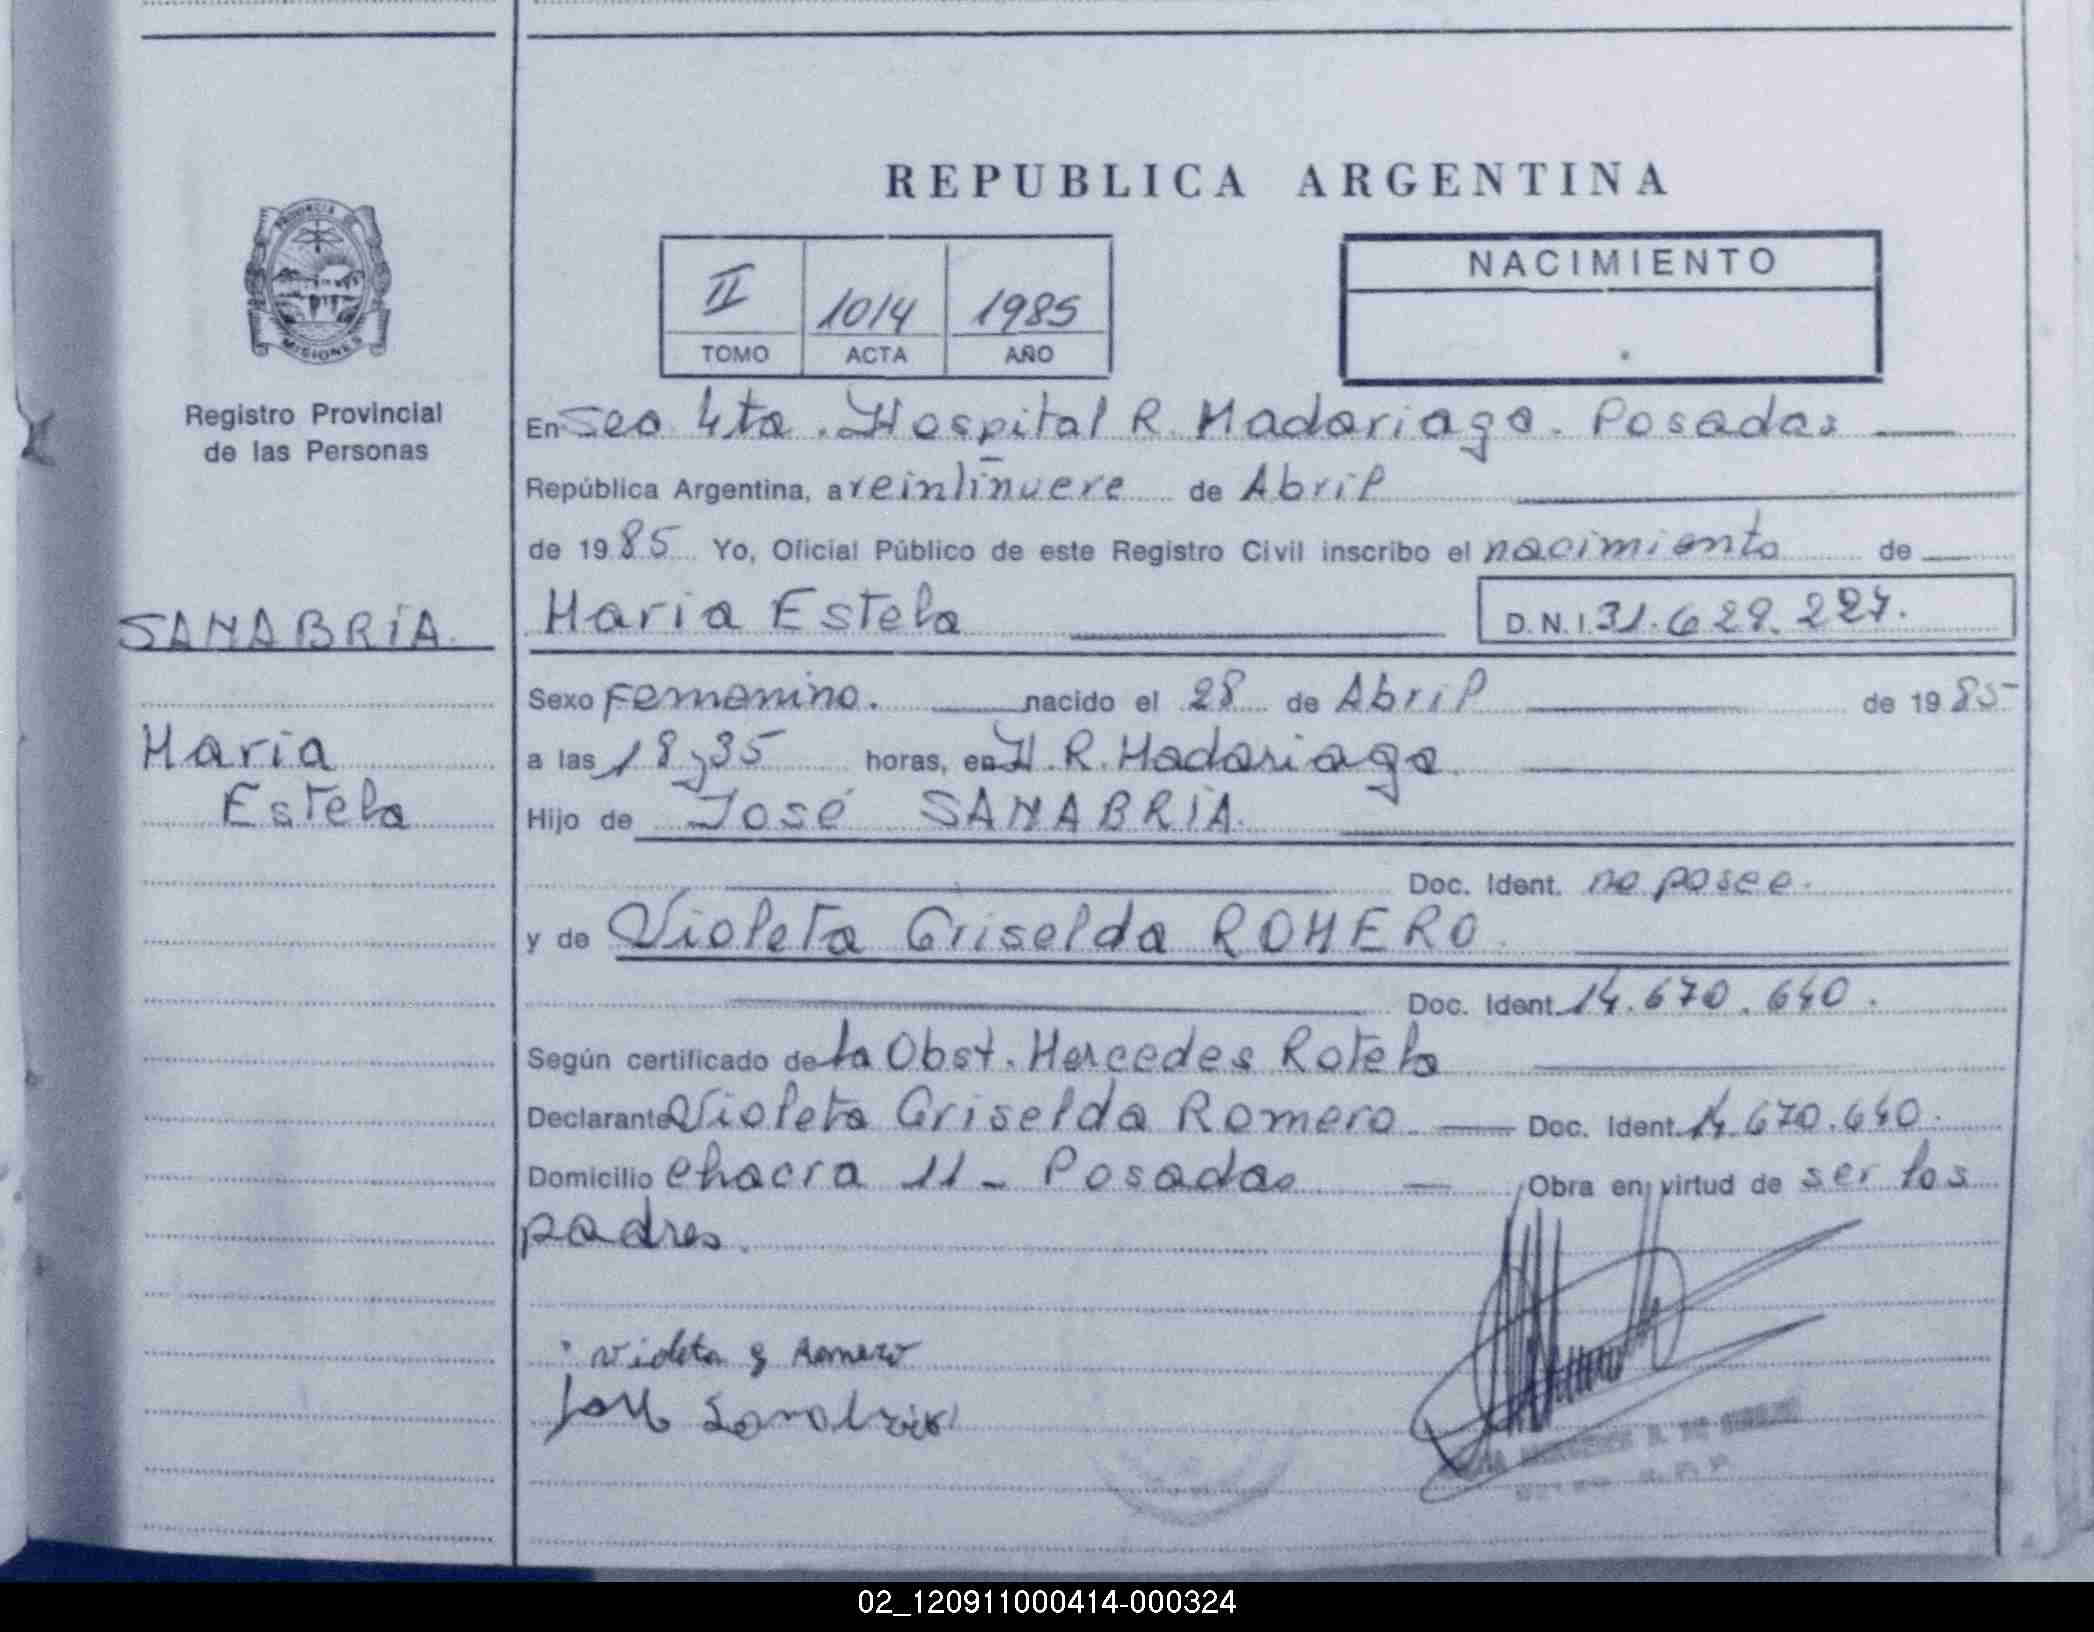 REPUBLICA ARGENTINA
PROVINCIA DE
MISIONES
Registro Provincial
de las Personas
II 1014 1985
TOMO ACTA AÑO
NACIMIENTO
En Sec. 4ta. Hospital R. Madariaga. Posadas
República Argentina, a veintinueve de Abril
de 1985 Yo, Oficial Público de este Registro Civil inscribo el nacimiento de
SANABRIA.
Maria Estela
D.N.I. 31.629.227.
Sexo Femenino. nacido el 28 de Abril de 1985
Maria
Estela
a las 18,35 horas, en H. R. Madariaga.
Hijo de José SANABRIA.
Doc. Ident. no posee.
y de Violeta Griselda ROMERO.
Doc. Ident. 14.670.640.
Según certificado de la Obst. Mercedes Rotela
Declarante Violeta Griselda Romero Doc. Ident. 14.670.640.
Domicilio chacra 11 - Posadas Obra en virtud de ser los
padres.
Violeta g Romero
José Sanabria
02_120911000414-000324